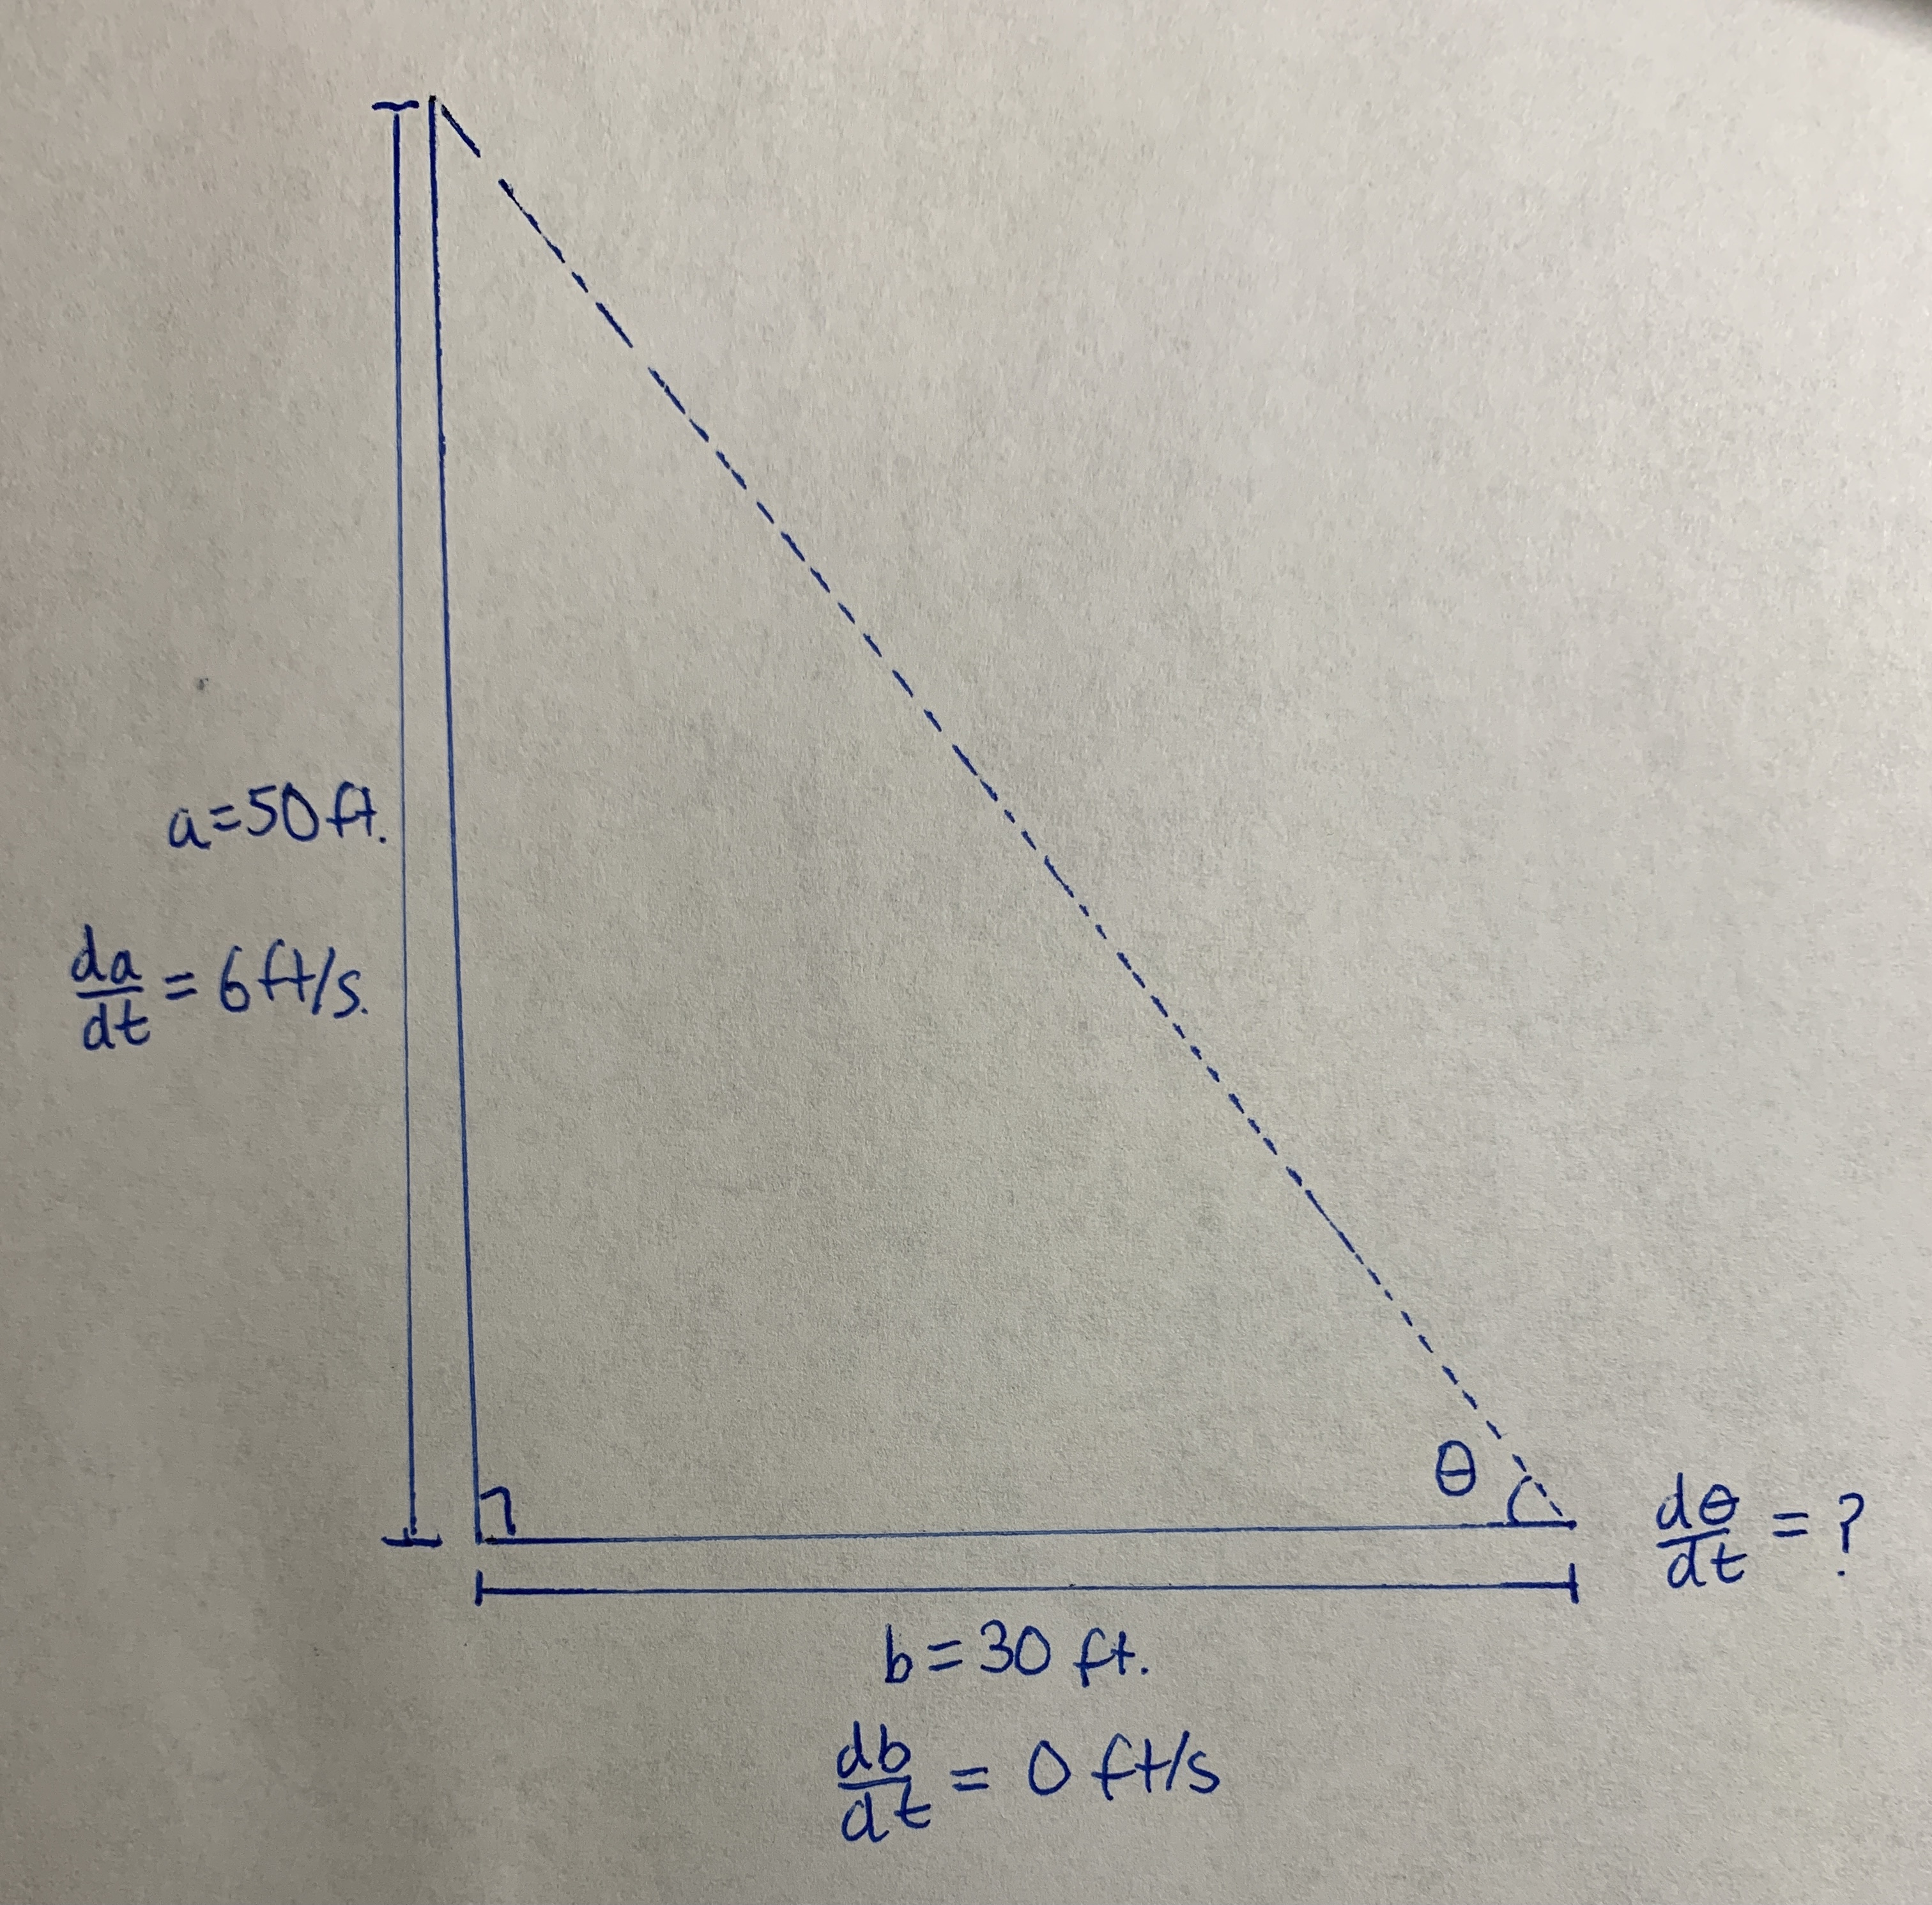 a=50ft.
da/dt = 6ft/s.
θ
dθ/dt = ?
b=30 ft.
db/dt = 0 ft/s